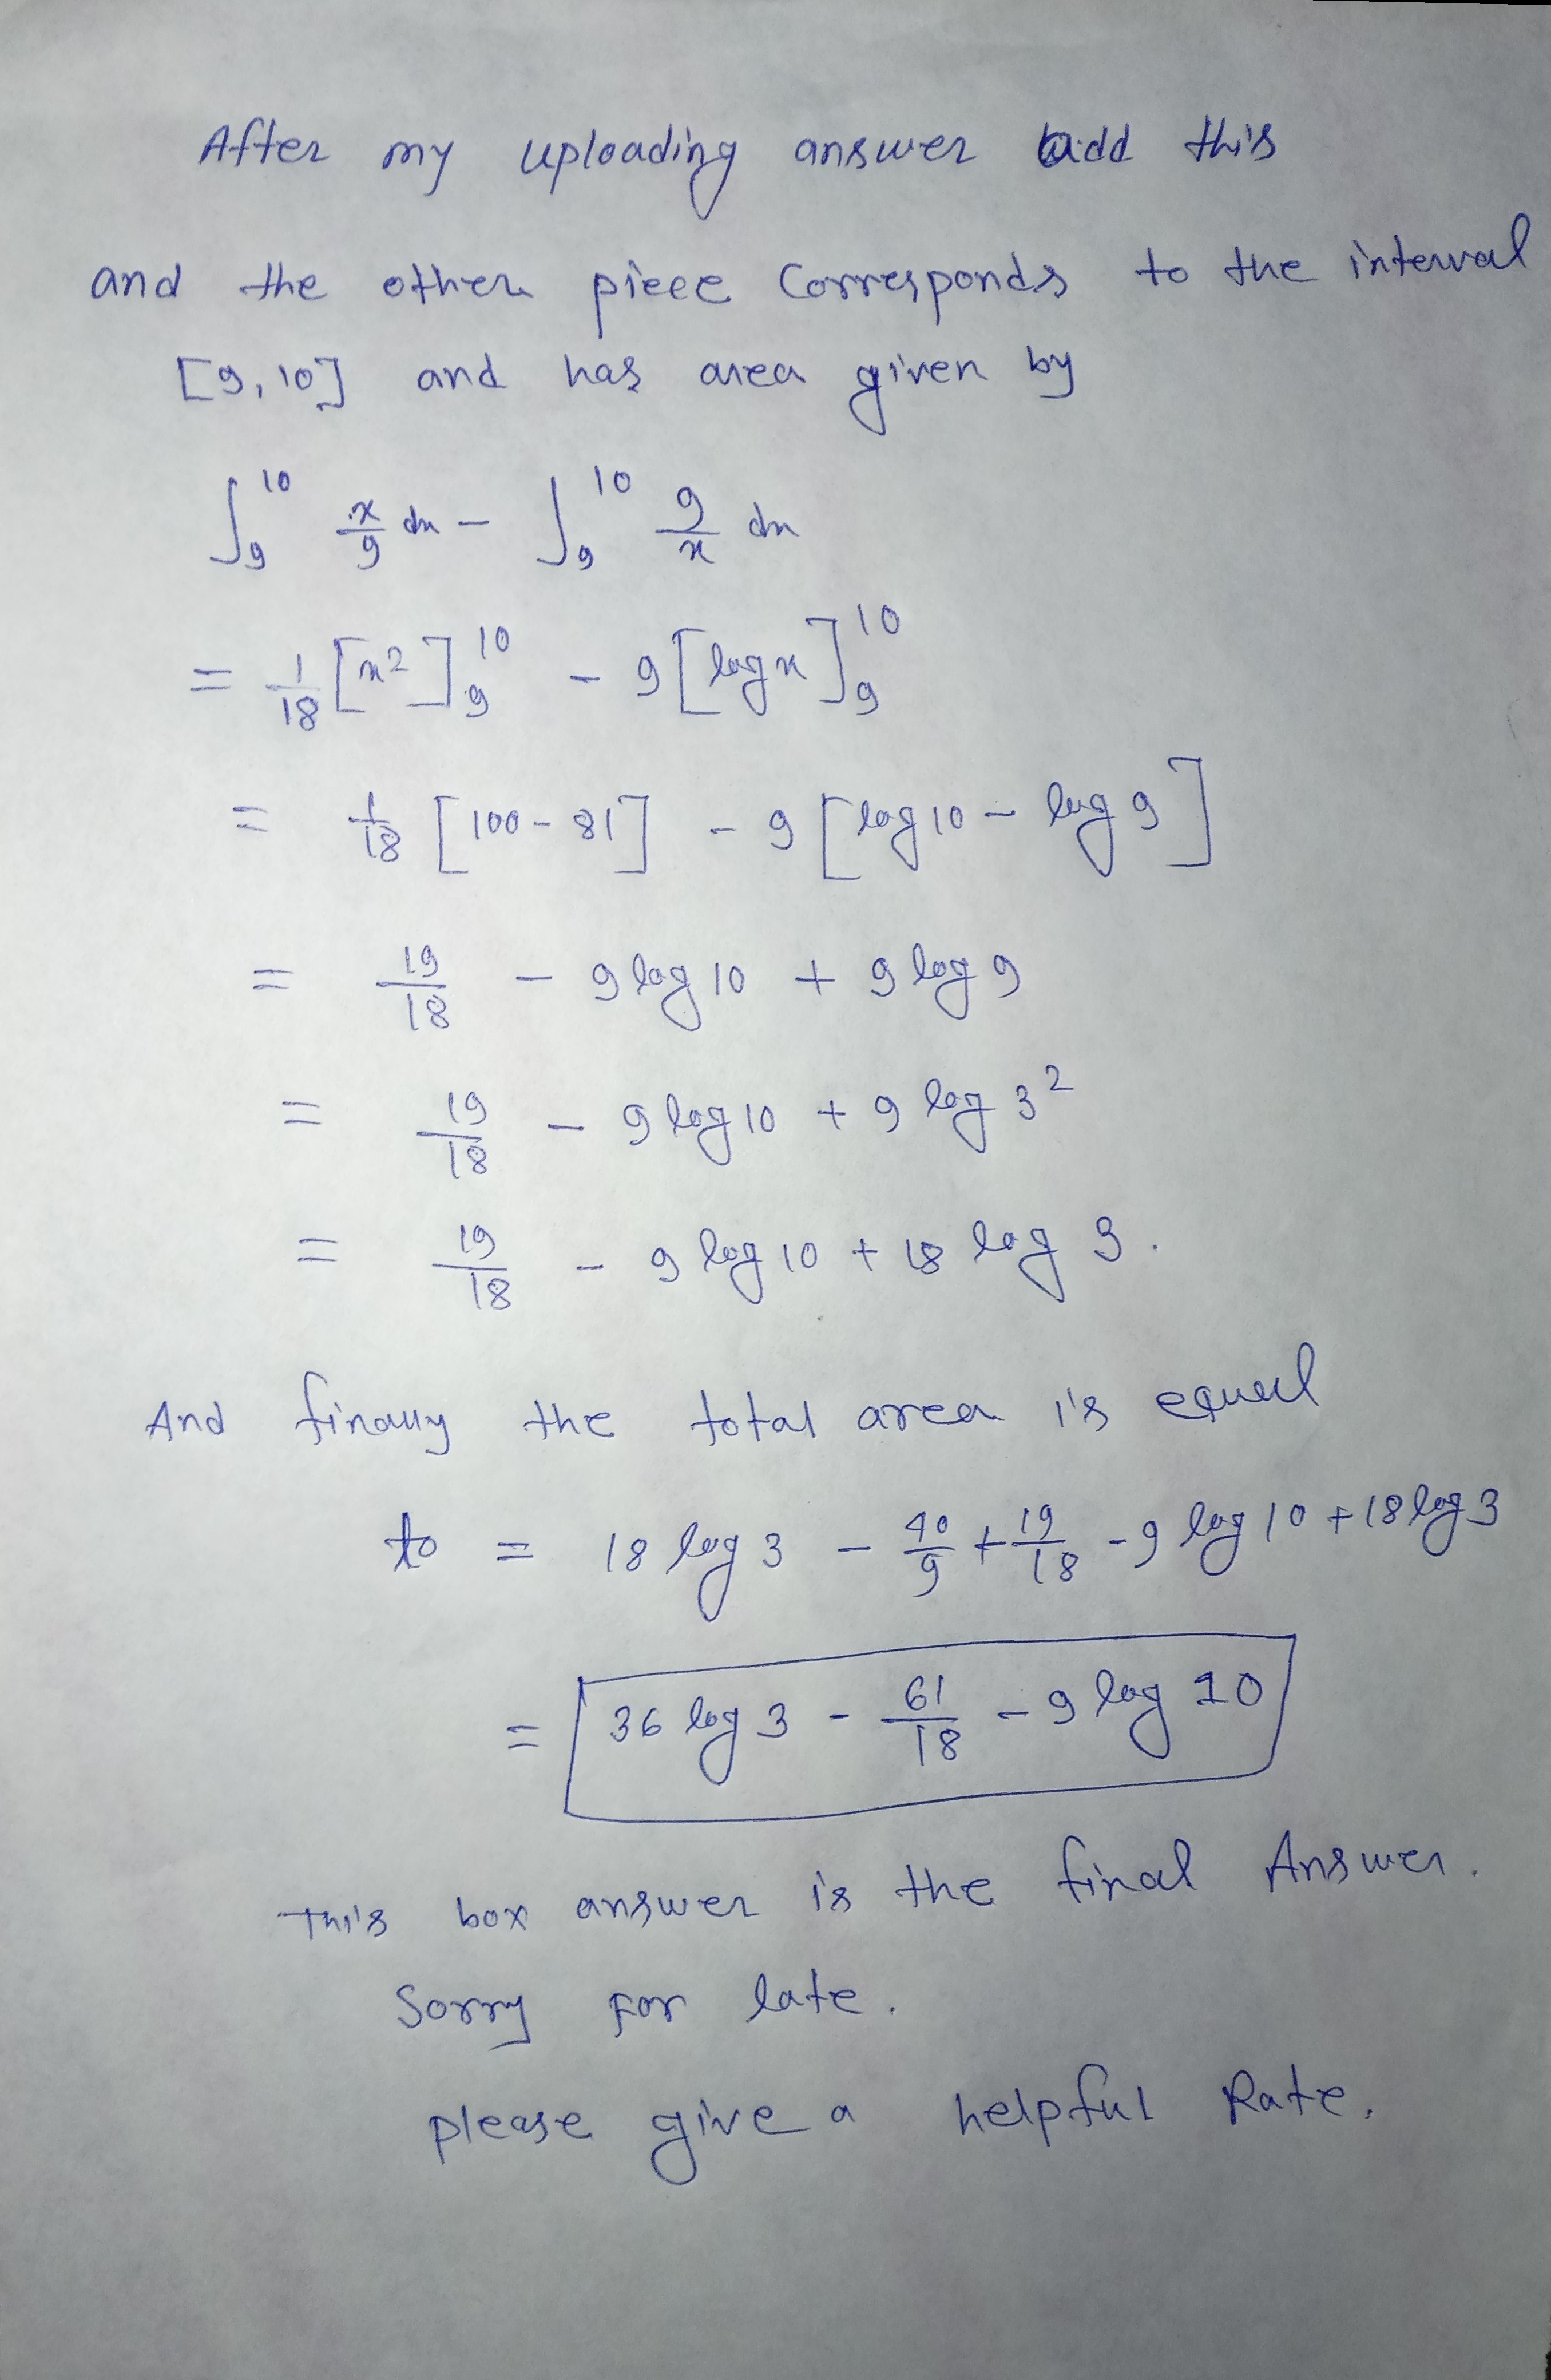 After my uploading answer add this
and the other piece corresponds to the interval
[9, 10] and has area given by
∫₉¹⁰ x/9 dx − ∫₉¹⁰ 9/x dx
= 1/18 [x²]₉¹⁰ − 9 [log x]₉¹⁰
= 1/18 [100 − 81] − 9 [log 10 − log 9]
= 19/18 − 9 log 10 + 9 log 9
= 19/18 − 9 log 10 + 9 log 3²
= 19/18 − 9 log 10 + 18 log 3.
And finally the total area is equal
to = 18 log 3 − 40/9 + 19/18 − 9 log 10 + 18 log 3
= 36 log 3 − 61/18 − 9 log 10
This box answer is the final Answer.
Sorry for late.
please give a helpful Rate.